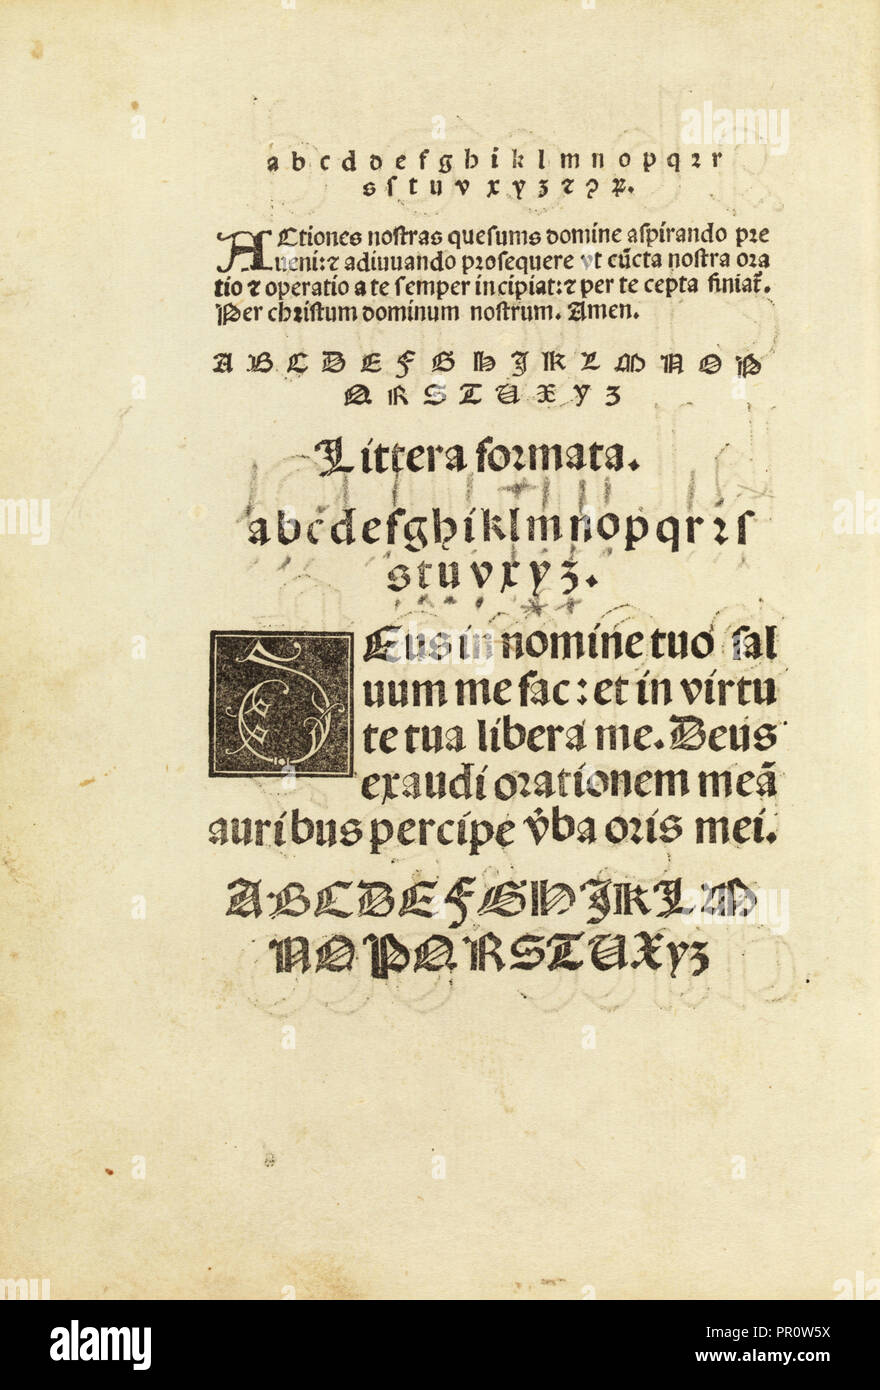 a b c d d e f g h i k l m n o p q ꝛ r
s ſ t u v x y z ⁊ ꝯ ꝝ.
ACtiones noſtras queſums domine aſpirando pꝛe
ueni:⁊ adiuuando pꝛoſequere vt cūcta noſtra oꝛa
tio ⁊ operatio a te ſemper incipiat:⁊ per te cepta finiat̄.
Per chꝛiſtum dominum noſtrum. Amen.
A B C D E F G H J K L M N O P
Q R S T U X Y Z
Littera foꝛmata.
a b c d e f g h i k l m n o p q r ꝛ ſ
s t u v x y z.
DEus in nomine tuo ſal
uum me fac: et in virtu
te tua libera me. Deus
exaudi oꝛationem meā
auribus percipe v̓ba oꝛis mei.
A B C D E F G H J K L M
N O P Q R S T U X Y Z
alamy
Image ID: PR0W5X
www.alamy.com